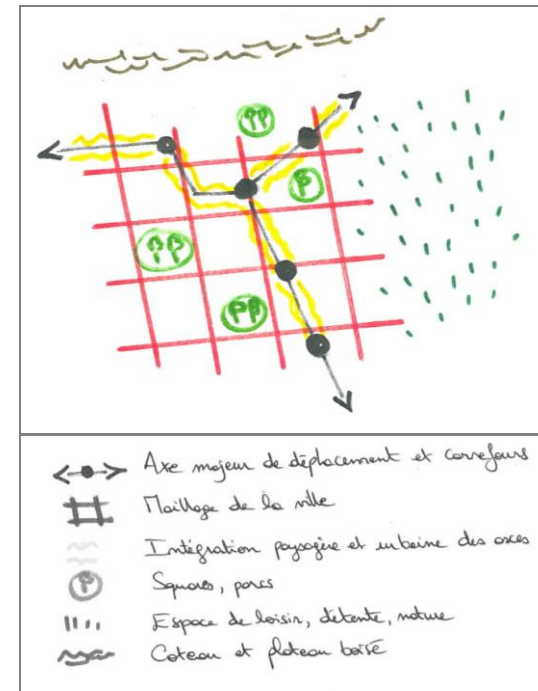 Axe majeur de déplacement et carrefours
Maillage de la ville
Intégration paysagère et urbaine des axes
Squares, parcs
Espace de loisir, détente, nature
Coteau et plateau boisé